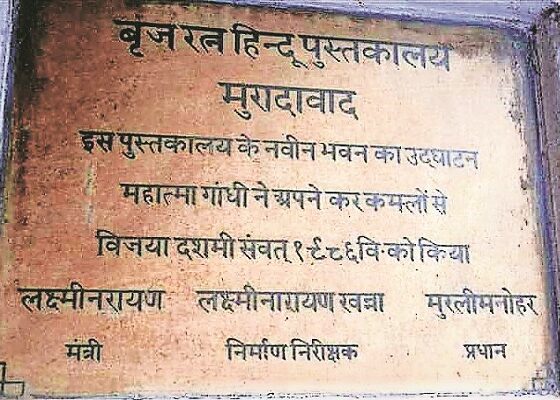 बृज रत्न हिन्दू पुस्तकालय
मुरादावाद
इस पुस्तकालय के नवीन भवन का उद्घाटन
महात्मा गांधी ने अपने कर कमलों से
विजया दशमी संवत् १९८६वि·को किया
लक्ष्मीनरायण लक्ष्मीनारायण खन्ना मुरलीमनोहर
मंत्री निर्माण निरीक्षक प्रधान